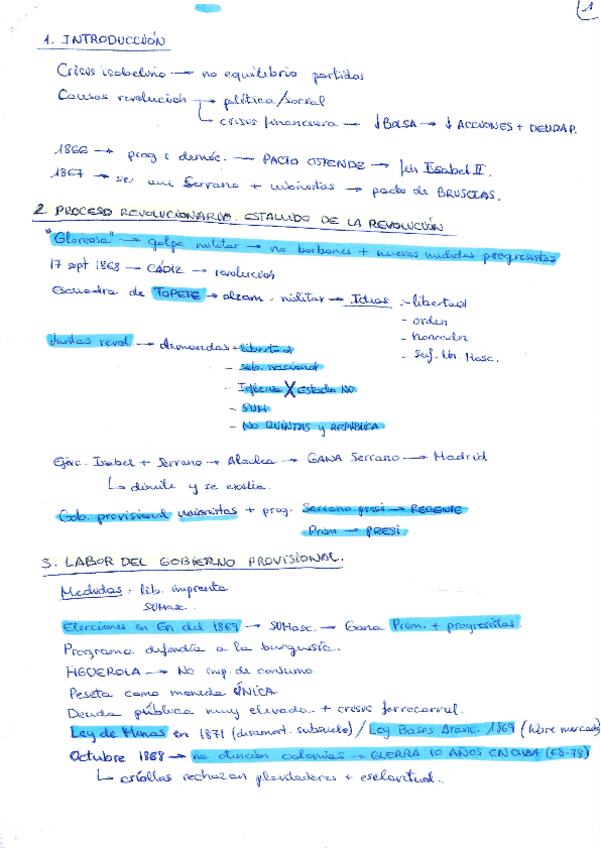 1
1. INTRODUCCIÓN
Crisis isabelina → no equilibrio partidos
Causas revolución → política/social
↳ crisis financiera → ↓ BOLSA → ↓ ACCIONES + DEUDA P.
1866 → prog. demóc. → PACTO OSTENDE → fin Isabel II.
1867 → se une Serrano + unionistas → pacto de BRUSELAS.
2. PROCESO REVOLUCIONARIO. ESTALLIDO DE LA REVOLUCIÓN
"Gloriosa" → golpe militar → no borbones + nuevas medidas progresistas
17 sept 1868 → CÁDIZ → revolución
Escuadra de TOPETE → alzam. militar → Ideas : - libertad
- orden
- honradez
- Suf. Un. Masc.
Juntas revol → demandas - libertad
- sob. nacional
- Iglesia X Estado NO.
- SUM
- No QUINTAS y REPÚBLICA.
Ejérc. Isabel + Serrano → Alcolea → GANA Serrano → Madrid
↳ dimite y se exilia.
Gob. provisional unionistas + prog. Serrano presi → REGENTE
Prim → PRESI.
3. LABOR DEL GOBIERNO PROVISIONAL.
Medidas : lib. imprenta
SUMasc.
Elecciones en En del 1869 → SUMasc. → Gana Prim. + progresistas.
Programa defendía a la burguesía.
FIGUEROLA → No imp. de consumo
Peseta como moneda ÚNICA
Deuda pública muy elevada + crisis ferrocarril.
Ley de Minas en 1871 (desamort. subsuelo) / Ley Bases Aranc. 1869 (libre mercado)
Octubre 1868 → no atención colonias → GUERRA 10 AÑOS EN CUBA (68-78)
↳ criollos rechazan + esclavitud.